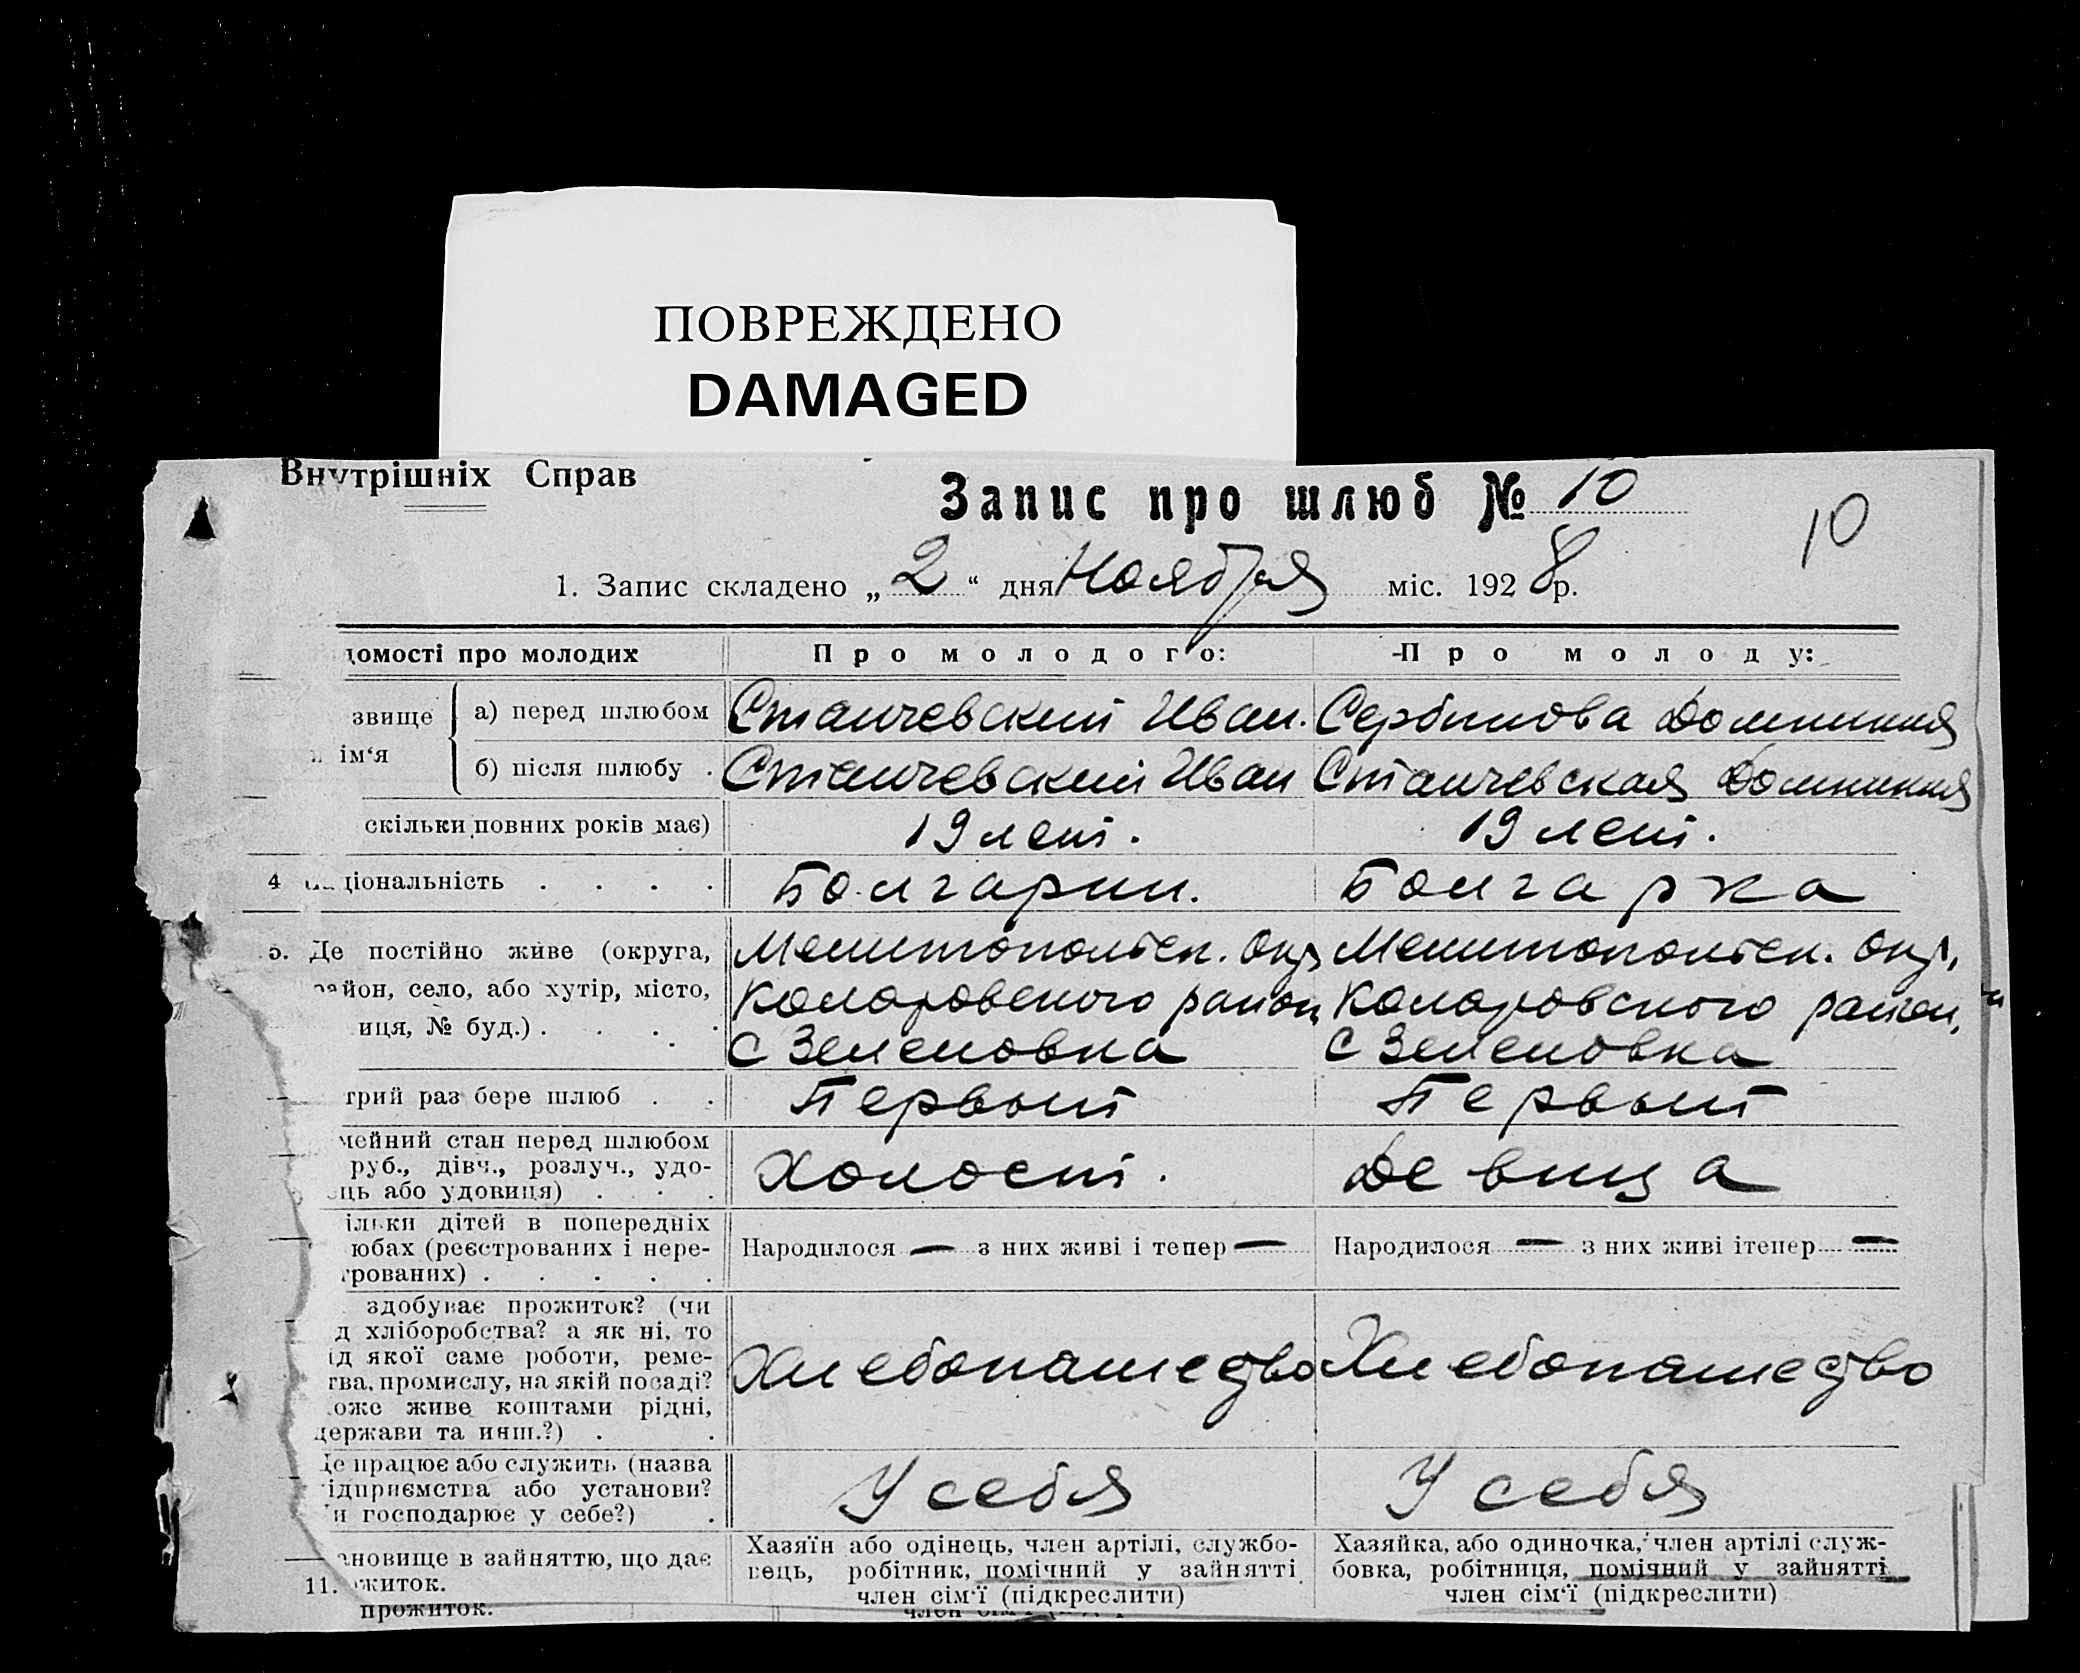 ПОВРЕЖДЕНО
DAMAGED
Внутрішніх Справ
Запис про шлюб № 10
10
1. Запис складено „ 2 “ дня Ноября міс. 1928 р.
домості про молодих
Про молодого:
Про молоду:
звище
ім‘я
а) перед шлюбом
Станчевский Иван.
Сербинова Домникия
б) після шлюбу .
Станчевский Иван
Станчевская Домникия
скільки повних років має)
19 лет.
19 лет.
4 ціональність . . . .
Болгарин.
Болгарка
5. Де постійно живе (округа,
район, село, або хутір, місто,
иця, № буд.) . . . .
Мелитопольск. Окр
Коларовского район
с Зеленовка
Мелитопольск. Окр.
Коларовского район
с Зеленовка
трий раз бере шлюб . .
Первый
Первый
мейний стан перед шлюбом
руб., дівч., розлуч., удо-
ць або удовиця) . . .
Холост.
Девица
ільки дітей в попередніх
юбах (реєстрованих і нере-
трованих) . . . . .
Народилося — з них живі і тепер —
Народилося — з них живі ітепер —
здобуває прожиток? (чи
д хліборобства? а як ні, то
ід якої саме роботи, реме-
тва, промислу, на якій посаді?
оже живе коштами рідні,
держави та инш.?) . .
Хлебопашество
Хлебопашество
Де працює або служить (назва
ідприємства або установи?
и господарює у себе?) .
У себя
У себя
ановище в зайняттю, що дає
11. житок.
прожиток.
Хазяїн або одінець, член артілі, службо-
вець, робітник, помічний у зайнятті
член сім‘ї (підкреслити)
Хазяйка, або одиночка, член артілі служ-
бовка, робітниця, помічний у зайнятті
член сім‘ї (підкреслити)